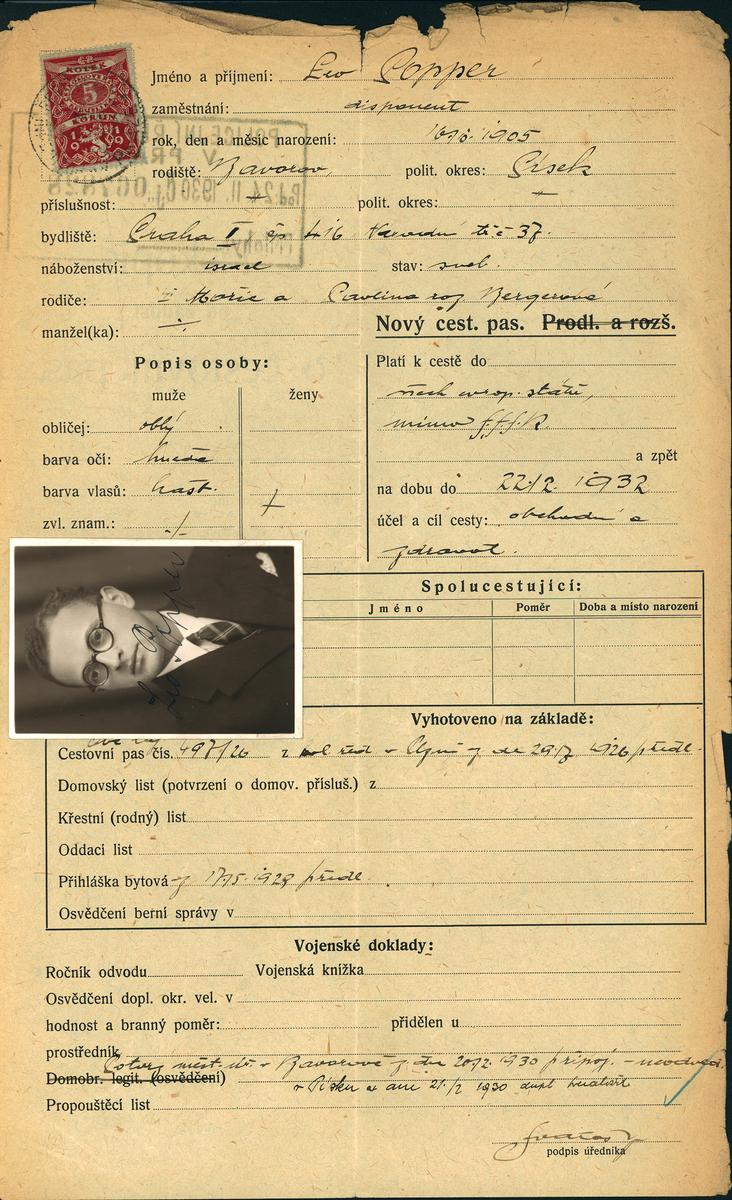 KOLEK
5
KORUN
1919
Jméno a příjmení: Leo Popper
zaměstnání: disponent
rok, den a měsíc narození: 1905
rodiště: Bavorov, polit. okres: Písek
příslušnost: polit. okres:
bydliště: Praha II čp 416 Národní tř. č 37.
náboženství: israel stav: svob.
rodiče: Mořic a Pavlina roz Bergerová
manžel(ka): ÷
Nový cest. pas. Prodl. a rozš.
Popis osoby:
muže ženy
Platí k cestě do
všech evrop. států,
mimo
obličej: oblý
barva očí: hnědé
a zpět
barva vlasů: kašt.
na dobu do 22/2. 1932
zvl. znam.: -/-
účel a cíl cesty: obchodní a
zdravot.
Leo Popper
Spolucestující:
Jméno Poměr Doba a místo narození
Vyhotoveno na základě:
Cestovní pas čís. 497/26 z 1926 předl.
Domovský list (potvrzení o domov. přísluš.) z
Křestní (rodný) list
Oddací list
Přihláška bytová z předl.
Osvědčení berní správy v
Vojenské doklady:
Ročník odvodu Vojenská knížka
Osvědčení dopl. okr. vel. v
hodnost a branný poměr: přidělen u
prostředník
měst. úř. v Bavorově z dne 20/2. 1930 připoj. -
Domobr. legit. (osvědčení) v Písku 21/2 1930
Propouštěcí list
podpis úředníka